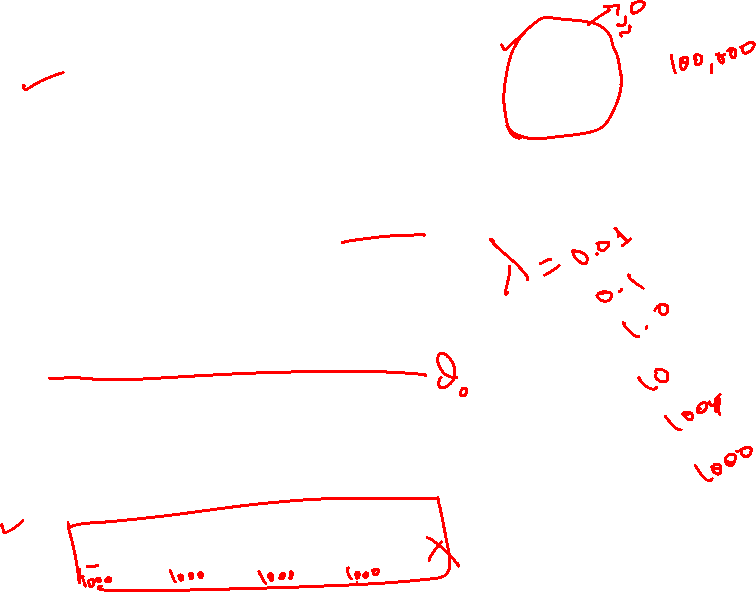 100,000
λ = 0.01
0.1
1.0
10
100
1000
θ₀
1000 1000 1000